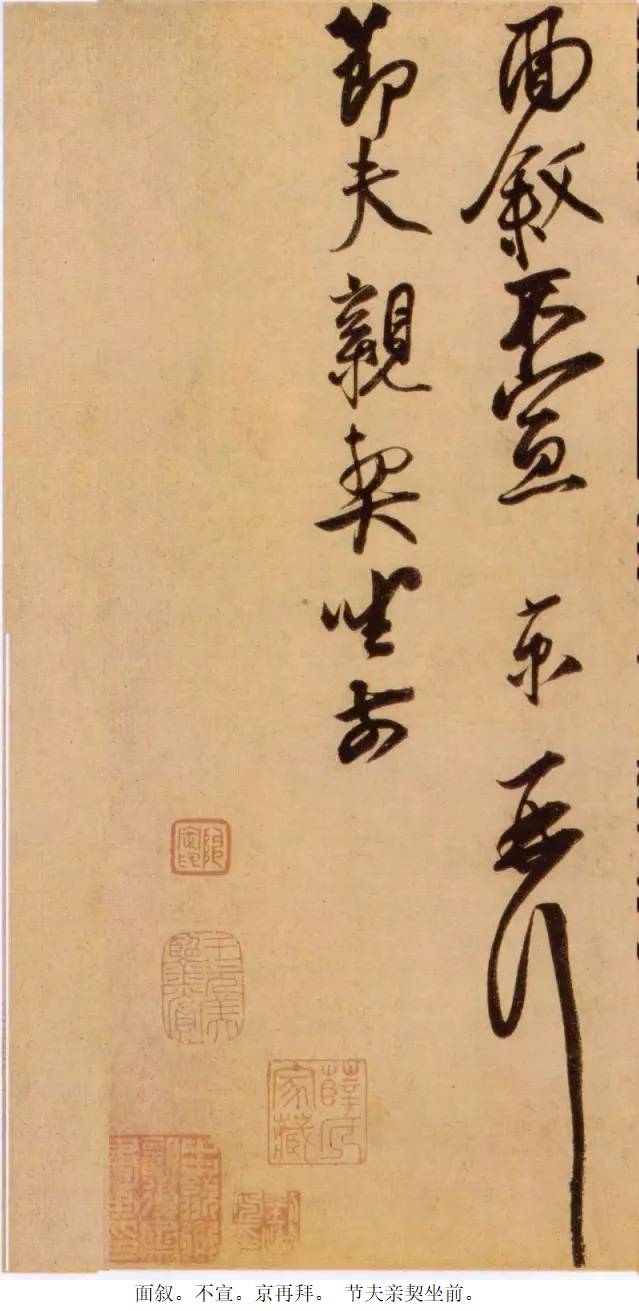 面敘不宣 京再拜
節夫親契坐前
薛氏家藏
面叙。不宣。京再拜。 节夫亲契坐前。